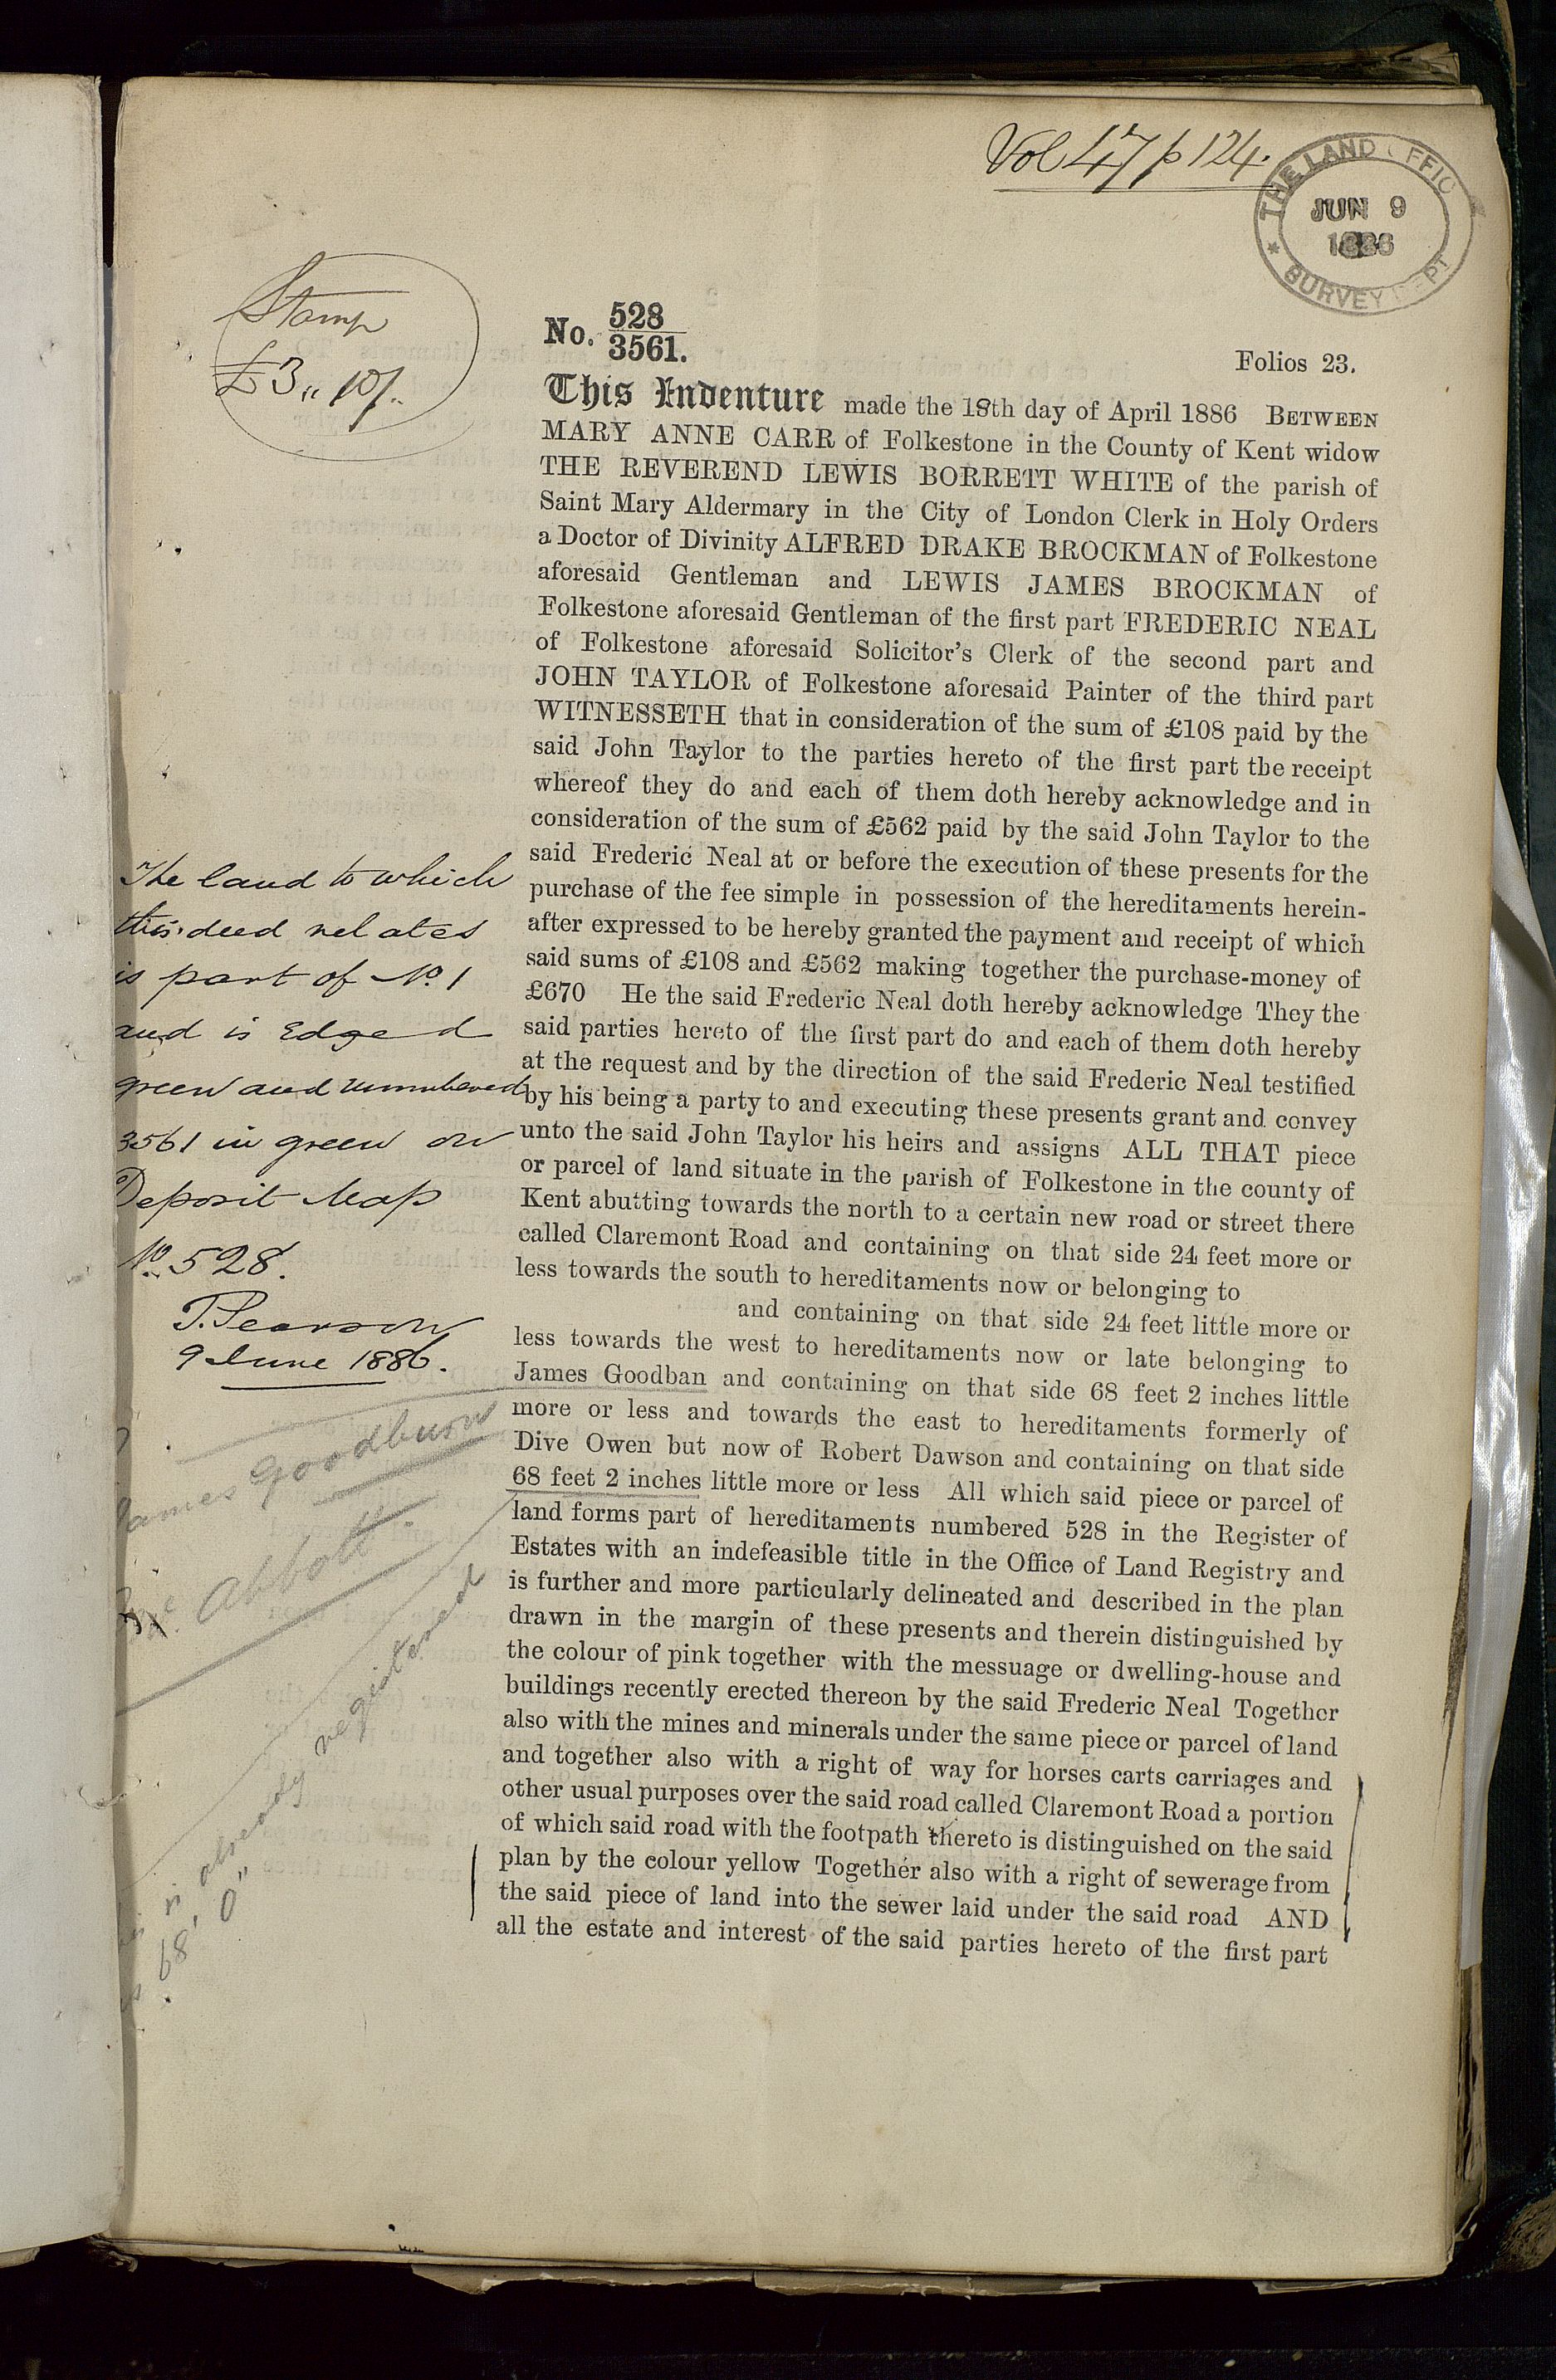 Vol 47 p 124.
THE LAND OFFIC
JUN 9
1886
SURVEY DEPT
Stamp
£3,, 10/.
No. 528
3561.
Folios 23.
This Indenture made the 19th day of April 1886 BETWEEN
MARY ANNE CARR of Folkestone in the County of Kent widow
THE REVEREND LEWIS BORRETT WHITE of the parish of
Saint Mary Aldermary in the City of London Clerk in Holy Orders
a Doctor of Divinity ALFRED DRAKE BROCKMAN of Folkestone
aforesaid Gentleman and LEWIS JAMES BROCKMAN of
Folkestone aforesaid Gentleman of the first part FREDERIC NEAL
of Folkestone aforesaid Solicitor's Clerk of the second part and
JOHN TAYLOR of Folkestone aforesaid Painter of the third part
WITNESSETH that in consideration of the sum of £108 paid by the
said John Taylor to the parties hereto of the first part the receipt
whereof they do and each of them doth hereby acknowledge and in
consideration of the sum of £562 paid by the said John Taylor to the
said Frederic Neal at or before the execution of these presents for the
purchase of the fee simple in possession of the hereditaments herein-
after expressed to be hereby granted the payment and receipt of which
said sums of £108 and £562 making together the purchase-money of
£670 He the said Frederic Neal doth hereby acknowledge They the
said parties hereto of the first part do and each of them doth hereby
at the request and by the direction of the said Frederic Neal testified
by his being a party to and executing these presents grant and convey
unto the said John Taylor his heirs and assigns ALL THAT piece
or parcel of land situate in the parish of Folkestone in the county of
Kent abutting towards the north to a certain new road or street there
called Claremont Road and containing on that side 24 feet more or
less towards the south to hereditaments now or belonging to
and containing on that side 24 feet little more or
less towards the west to hereditaments now or late belonging to
James Goodban and containing on that side 68 feet 2 inches little
more or less and towards the east to hereditaments formerly of
Dive Owen but now of Robert Dawson and containing on that side
68 feet 2 inches little more or less All which said piece or parcel of
land forms part of hereditaments numbered 528 in the Register of
Estates with an indefeasible title in the Office of Land Registry and
is further and more particularly delineated and described in the plan
drawn in the margin of these presents and therein distinguished by
the colour of pink together with the messuage or dwelling-house and
buildings recently erected thereon by the said Frederic Neal Together
also with the mines and minerals under the same piece or parcel of land
and together also with a right of way for horses carts carriages and
other usual purposes over the said road called Claremont Road a portion
of which said road with the footpath thereto is distinguished on the said
plan by the colour yellow Together also with a right of sewerage from
the said piece of land into the sewer laid under the said road AND
all the estate and interest of the said parties hereto of the first part
The land to which
this deed relates
is part of No. 1
and is Edged
green and numbered
3561 in green on
Deposit Map
No. 528.
T. Pearson
9 June 1886.
James Goodburn
Abbott.
already registered
68' 0"